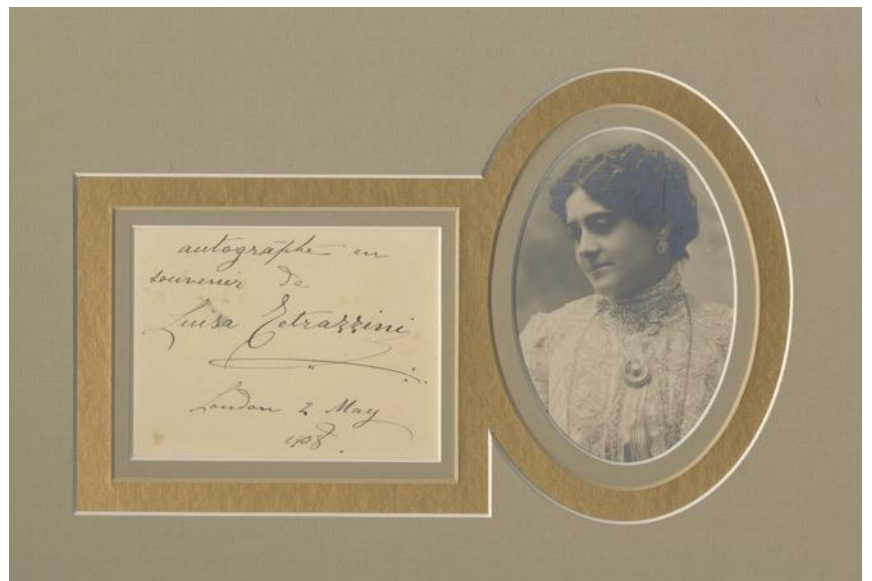 autographe en
souvenir de
Luisa Tetrazzini
London 2 May
1908.